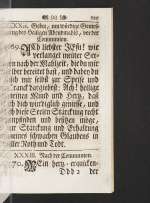 XXXII. Gebet, um würdige Genies-
sung des Heiligen Abendmahls, vor der
Communion.
69. ACh liebster JEsu! wie
verlanget meiner See-
len nach der Mahlzeit, die du mir
hier bereitet hast, und dabey du
dich mir selbst zur Speise und
Tranck dargiebst: Ach! heilige
meinen Mund und Hertz, daß
ich dich würdiglich geniesse, und
durch diese Seelen Stärckung recht
empfinden und besitzen möge,
zur Stärckung und Erhaltung
meines schwachen Glaubens in
aller Noth und Todt.
XXXIII. Nach der Communion.
70. MEin hertz, erquicken-
Ddd 2 der